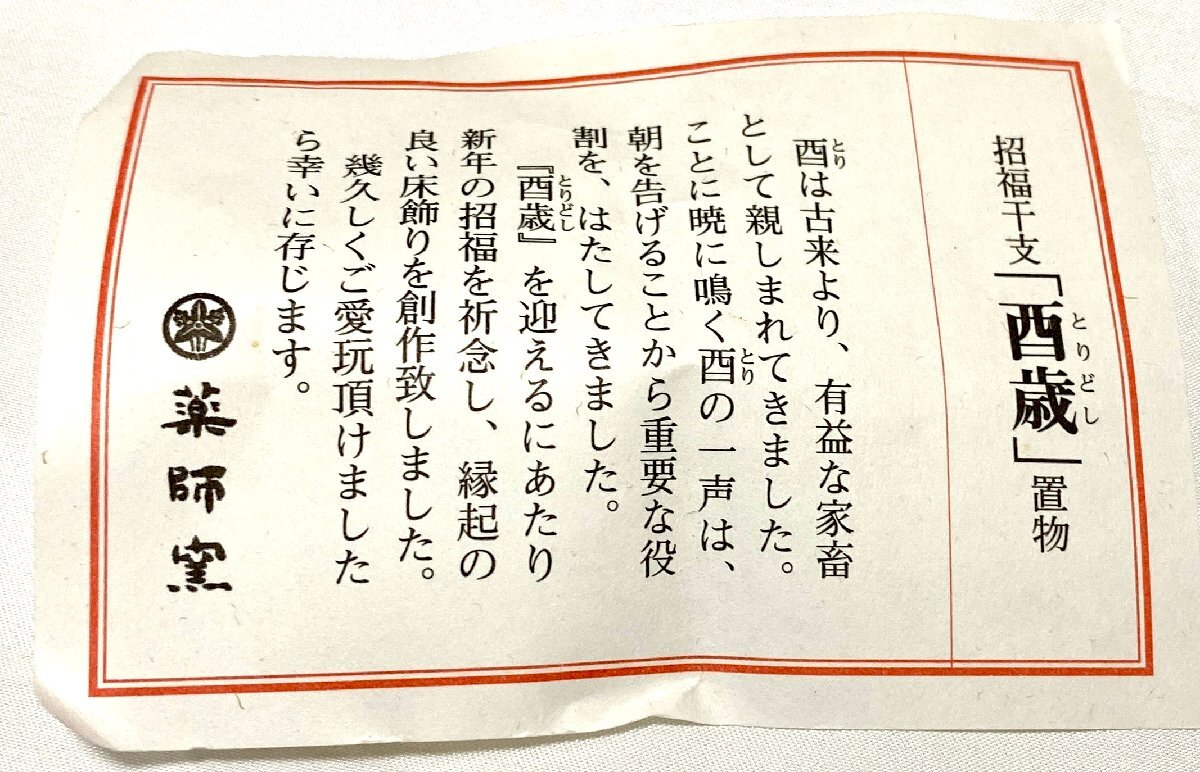 招福干支「酉歳」置物
とりどし
酉は古来より、有益な家畜
とり
として親しまれてきました。
ことに暁に鳴く酉の一声は、
とり
朝を告げることから重要な役
割を、はたしてきました。
『酉歳』を迎えるにあたり
とりどし
新年の招福を祈念し、縁起の
良い床飾りを創作致しました。
幾久しくご愛玩頂けました
ら幸いに存じます。
薬師窯